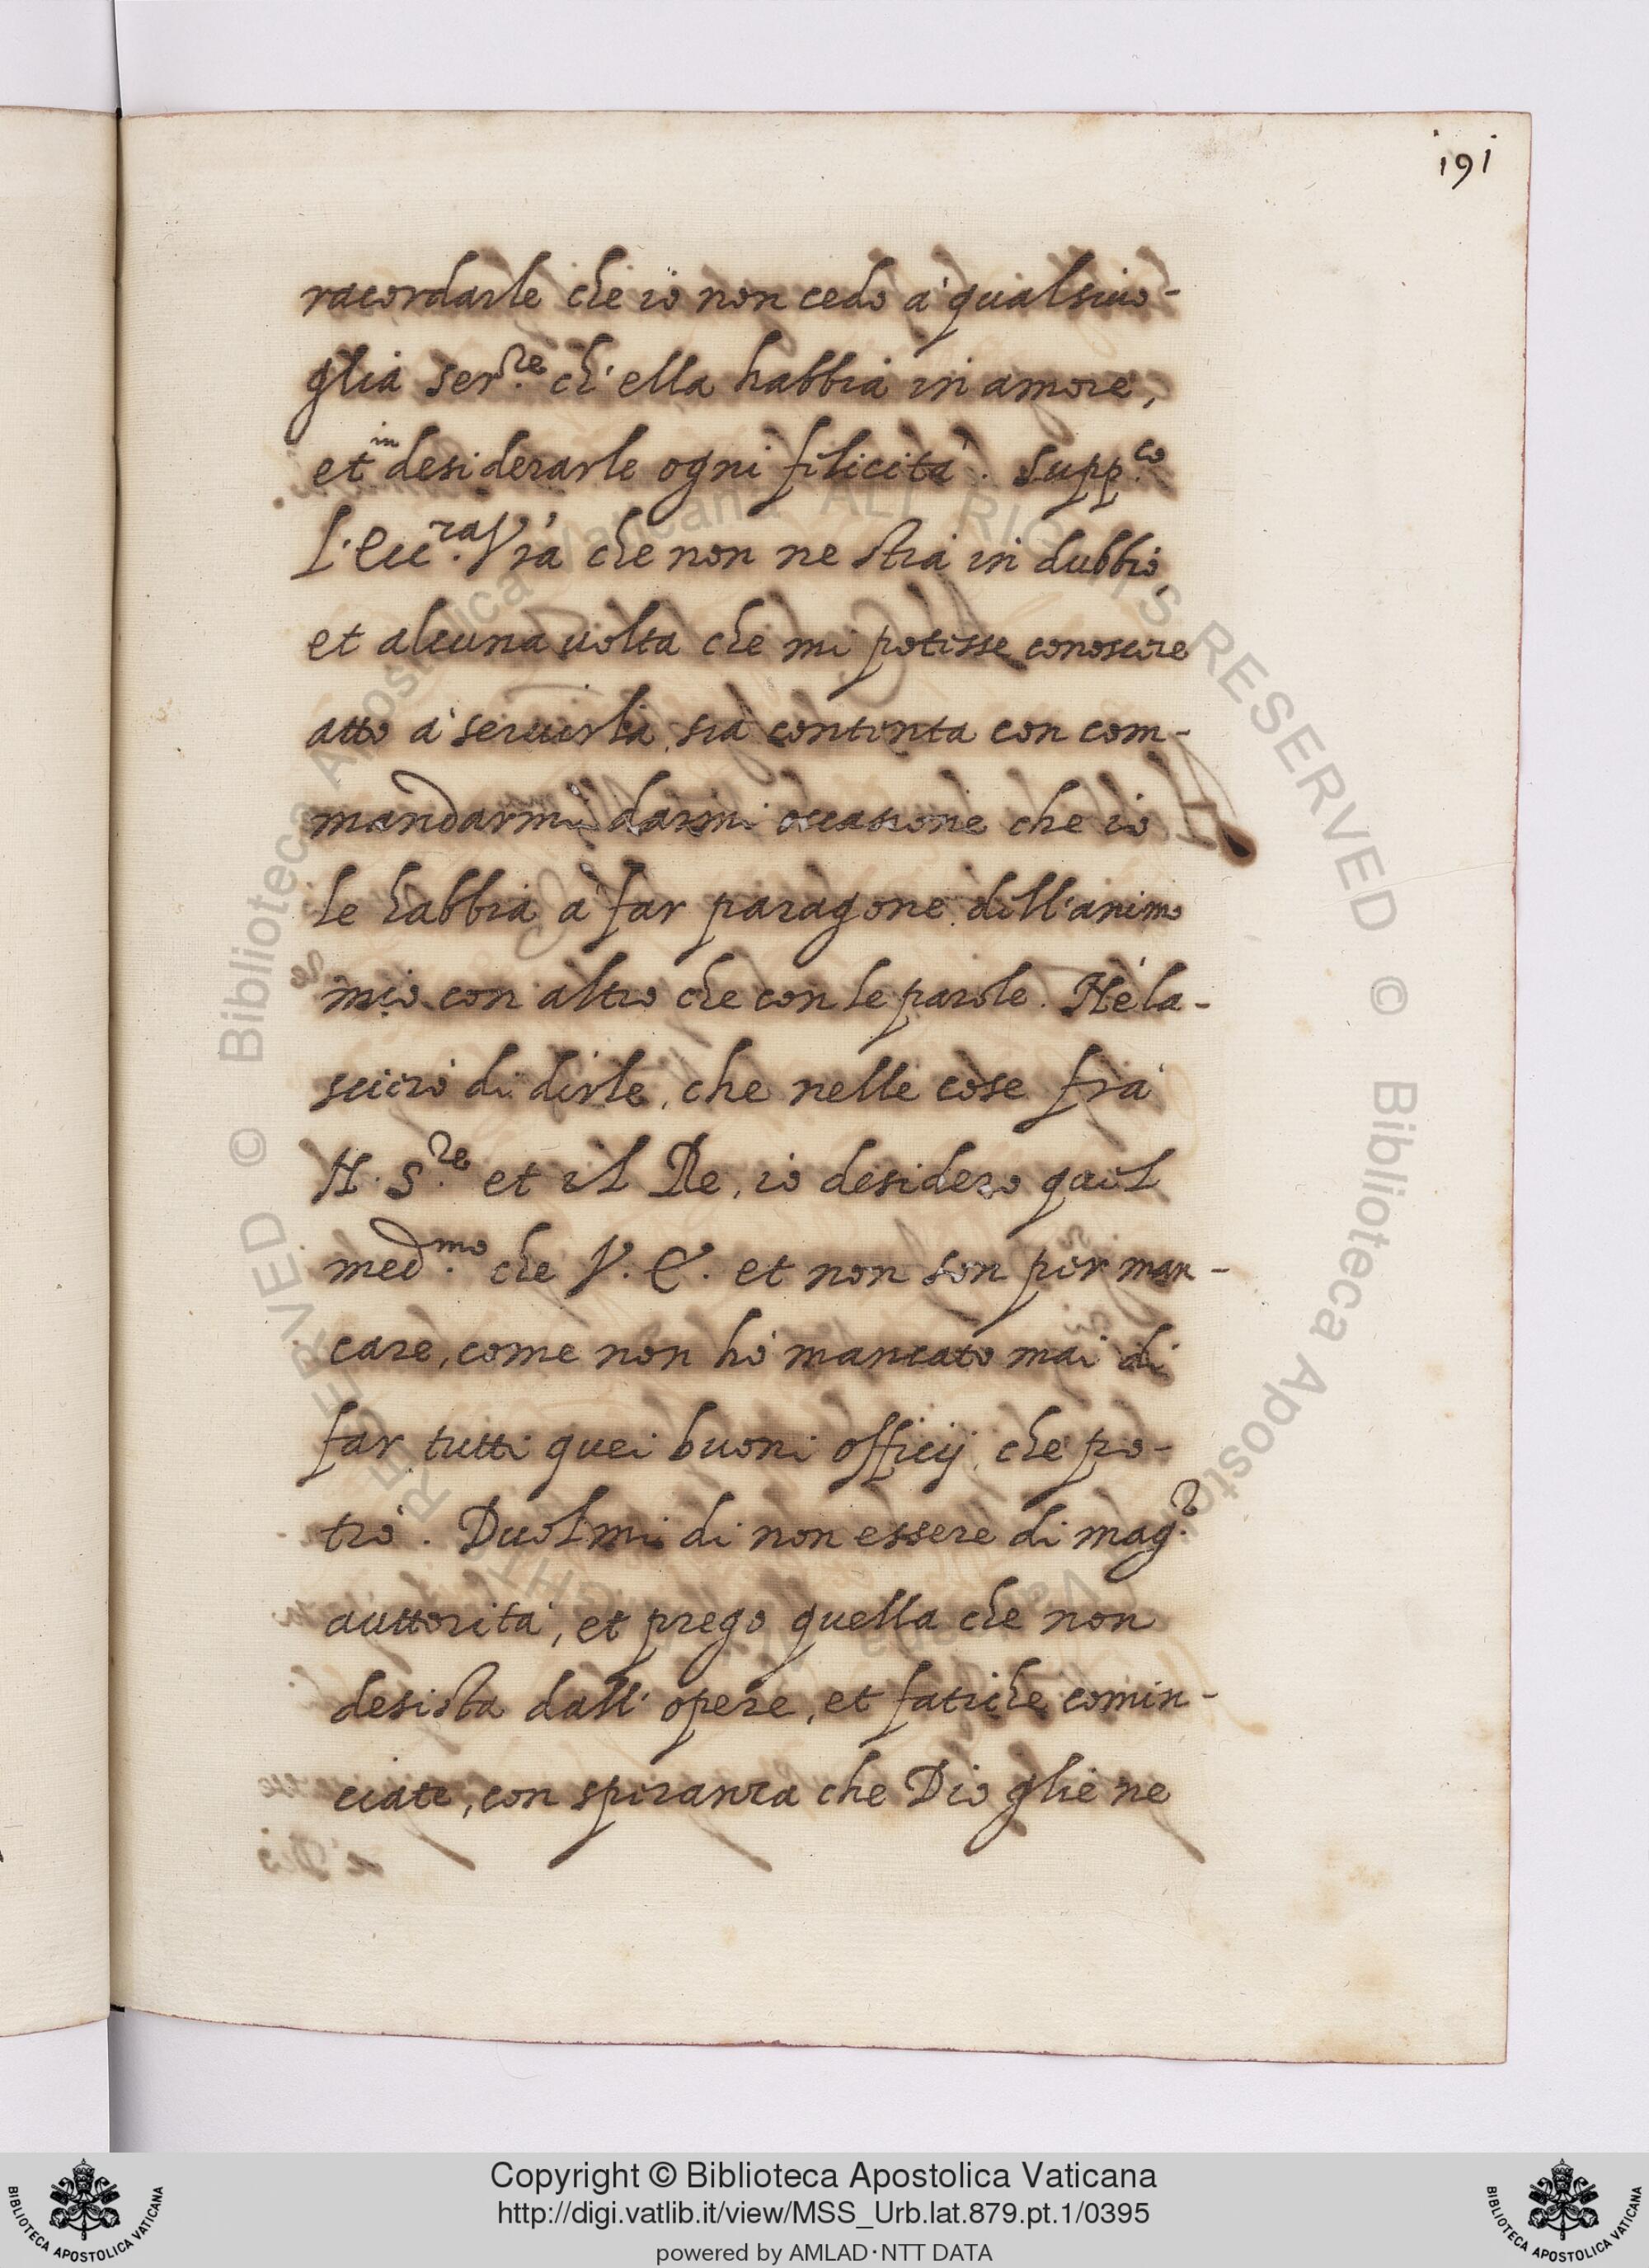 191
racordarle che io non cedo à qualsiuo-
glia ser.re ch'ella habbia in amore,
et in desiderarle ogni felicità. Supp.co
l'Ecc.za V'ra che non ne stia in dubbio
et alcuna uolta che mi potesse conoscere
atto à seruirla, sia contenta con com-
mandarmi darmi occasione che io
le habbia à far paragone dell'animo
mio con altro che con le parole. Nè la-
scierò di dirle, che nelle cose frà
N. S.re et il Re, io desidero quel
med.mo che V. E. et non son per man-
care, come non hò mancato mai di
far tutti quei buoni officij che po-
trò. Duolmi di non essere di mag.r
auttorità, et prego quella che non
desista dall'opere, et fatiche comin-
ciate, con speranza che Dio gliene
Copyright © Biblioteca Apostolica Vaticana
http://digi.vatlib.it/view/MSS_Urb.lat.879.pt.1/0395
powered by AMLAD·NTT DATA
BIBLIOTECA APOSTOLICA VATICANA
BIBLIOTECA APOSTOLICA VATICANA